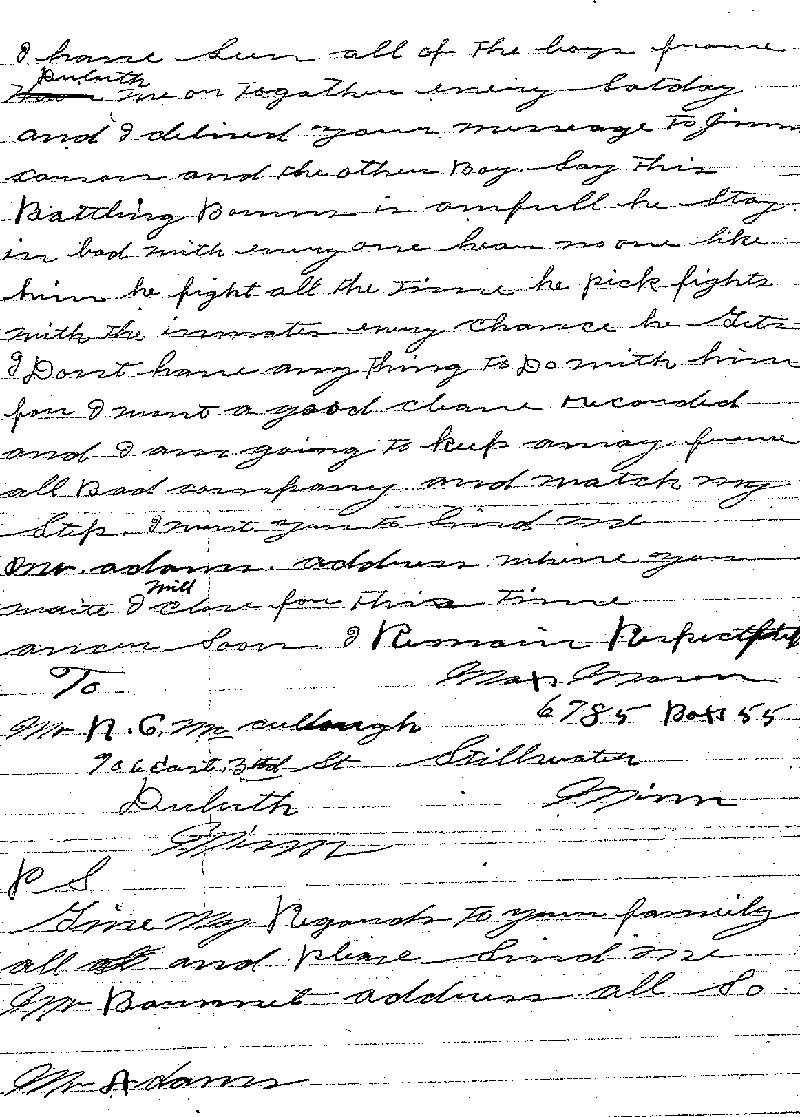 I have seen all of the boys frome
Duluth
me on Together every Satday
and I delived your message to Jim
canson and the other Boy. Say this
Battling Bounn is amfull he Stay
in bad with everyone hear no one like
him he fight all the time he pick fights
with the inmates every chance he Gets
I Dont have any thing to Do with him
for I want a good cleane recorded
and I am going to keep away frome
all Bad company and watch my
Step. I want you to Sind me
Mr. adams. address where you
write I will close for this time
ancer Soon I Remain Respectfully
To Max Mason
Mr N. C. Mc cullough 6785 Box 55
706 East 3rd St Stillwater
Duluth Minn
Minn
P S
Give My Regards to your family
all and please Sind me
Mr address all So
Mr Adams